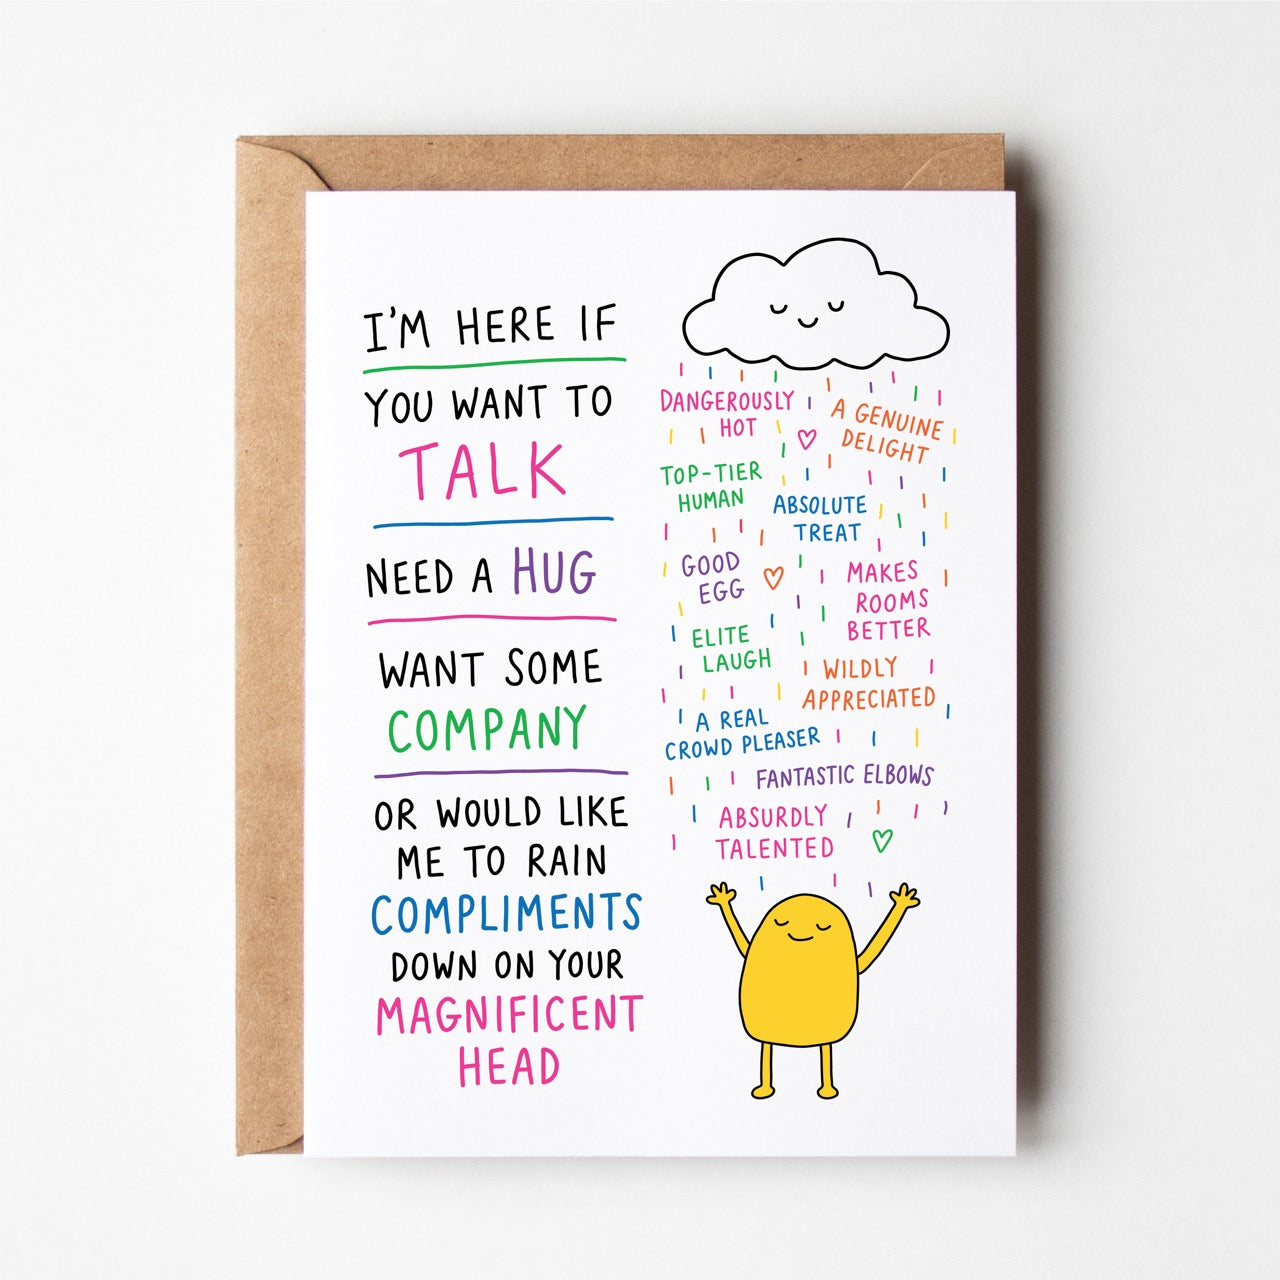 I'M HERE IF
YOU WANT TO
TALK
NEED A HUG
WANT SOME
COMPANY
OR WOULD LIKE
ME TO RAIN
COMPLIMENTS
DOWN ON YOUR
MAGNIFICENT
HEAD
DANGEROUSLY
HOT
A GENUINE
DELIGHT
TOP-TIER
HUMAN
ABSOLUTE
TREAT
GOOD
EGG
MAKES
ROOMS
BETTER
ELITE
LAUGH
WILDLY
APPRECIATED
A REAL
CROWD PLEASER
FANTASTIC ELBOWS
ABSURDLY
TALENTED